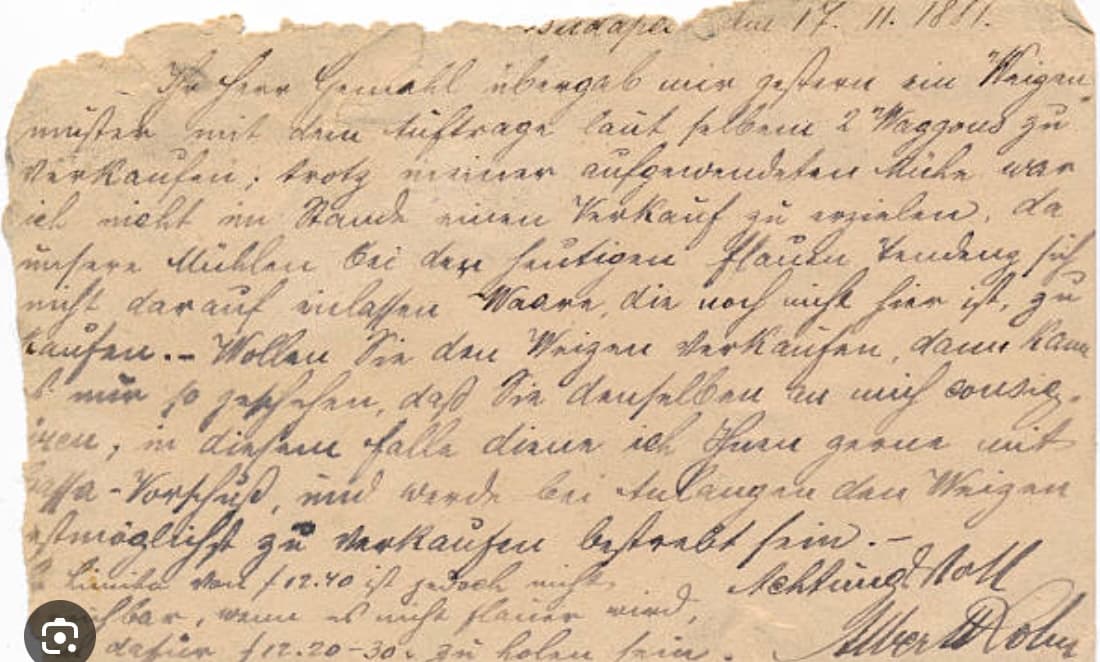 den 17. 11. 1881.
Ihr Herr Gemahl übergab mir gestern ein Weizen-
muster mit dem Auftrage laut selbem 2 Waggons zu
verkaufen; trotz meiner aufgewendeten Mühe war
ich nicht im Stande einen Verkauf zu erzielen, da
unsere Mühlen bei der heutigen flauen Tendenz sich
nicht darauf einlassen Waare, die noch nicht hier ist, zu
kaufen.- Wollen Sie den Weizen verkaufen, dann kann
nur so geschehen, daß Sie denselben an mich consig-
in diesem Falle diene ich Ihnen gerne mit
-Vorschuß, und werde bei Anlangen den Weizen
zu verkaufen bestrebt sein.-
Limite von f 12.40 ist jedoch nicht
Achtungsvoll
wenn es nicht flauer wird,
dafür f 12.20-30 zu holen sein.
Albert